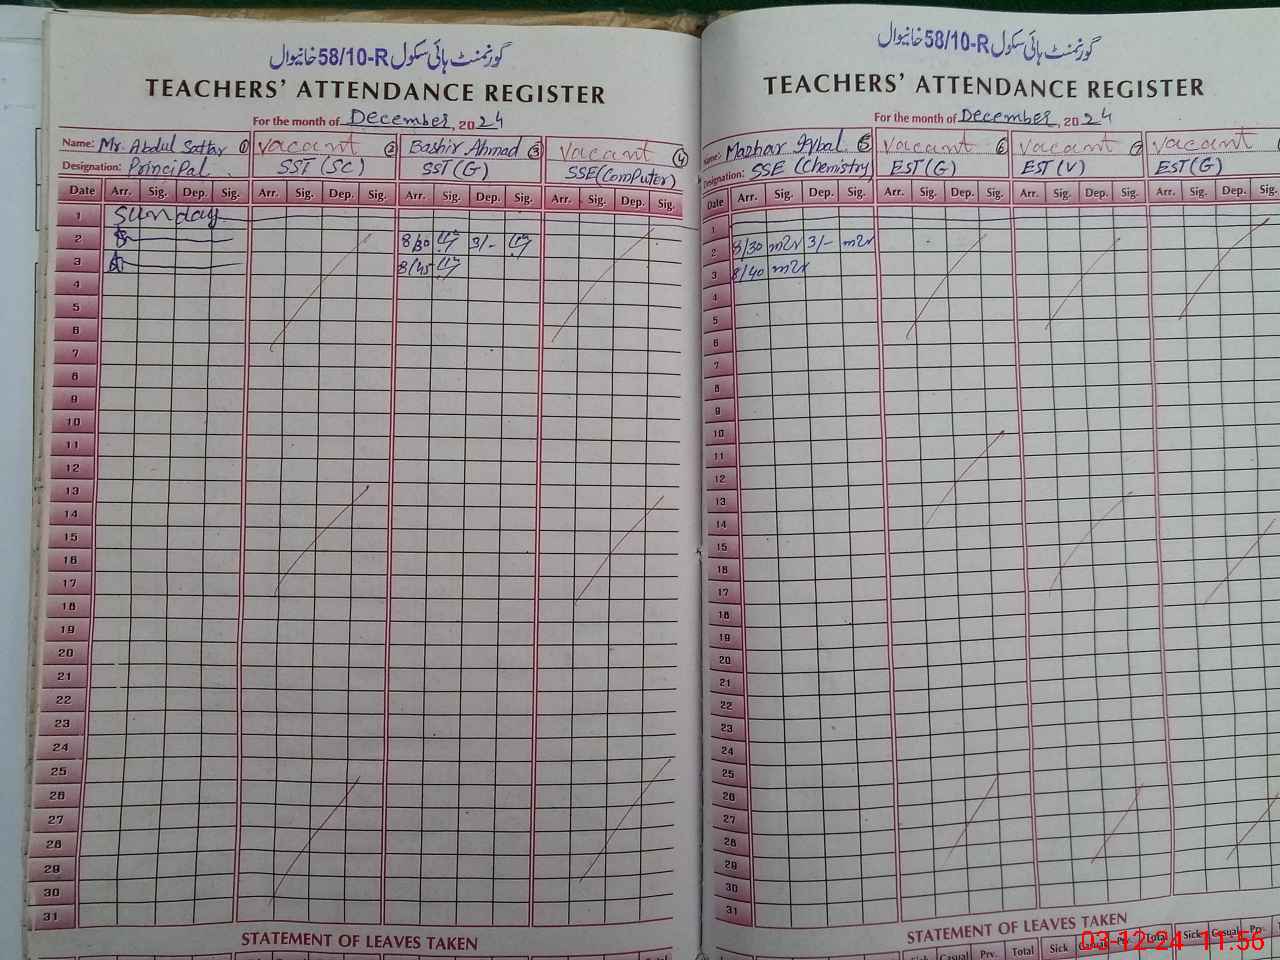 گورنمنٹ ہائی سکول 58/10-R خانیوال
TEACHERS' ATTENDANCE REGISTER
For the month of December, 2024
Name: Mr. Abdul Sattar ① Vacant ② Bashir Ahmad ③ Vacant ④
Designation: Principal. SST (SC) SST (G) SSE (Computer)
Date Arr. Sig. Dep. Sig. Arr. Sig. Dep. Sig. Arr. Sig. Dep. Sig. Arr. Sig. Dep. Sig.
1 Sunday
2 8/30 3/-
3 8/45
4
5
6
7
8
9
10
11
12
13
14
15
16
17
18
19
20
21
22
23
24
25
26
27
28
29
30
31
STATEMENT OF LEAVES TAKEN
گورنمنٹ ہائی سکول 58/10-R خانیوال
TEACHERS' ATTENDANCE REGISTER
For the month of December, 2024
Name: Mazhar Iqbal ⑤ Vacant ⑥ Vacant ⑦ Vacant
Designation: SSE (Chemistry) EST (G) EST (V) EST (G)
Date Arr. Sig. Dep. Sig. Arr. Sig. Dep. Sig. Arr. Sig. Dep. Sig. Arr. Sig. Dep. Sig.
1
2 8/30 3/-
3 8/40
4
5
6
7
8
9
10
11
12
13
14
15
16
17
18
19
20
21
22
23
24
25
26
27
28
29
30
31
STATEMENT OF LEAVES TAKEN
Sick Casual Prv. Total Sick Casual Prv. Total Sick Casual Prv.
03-12-24 11:56